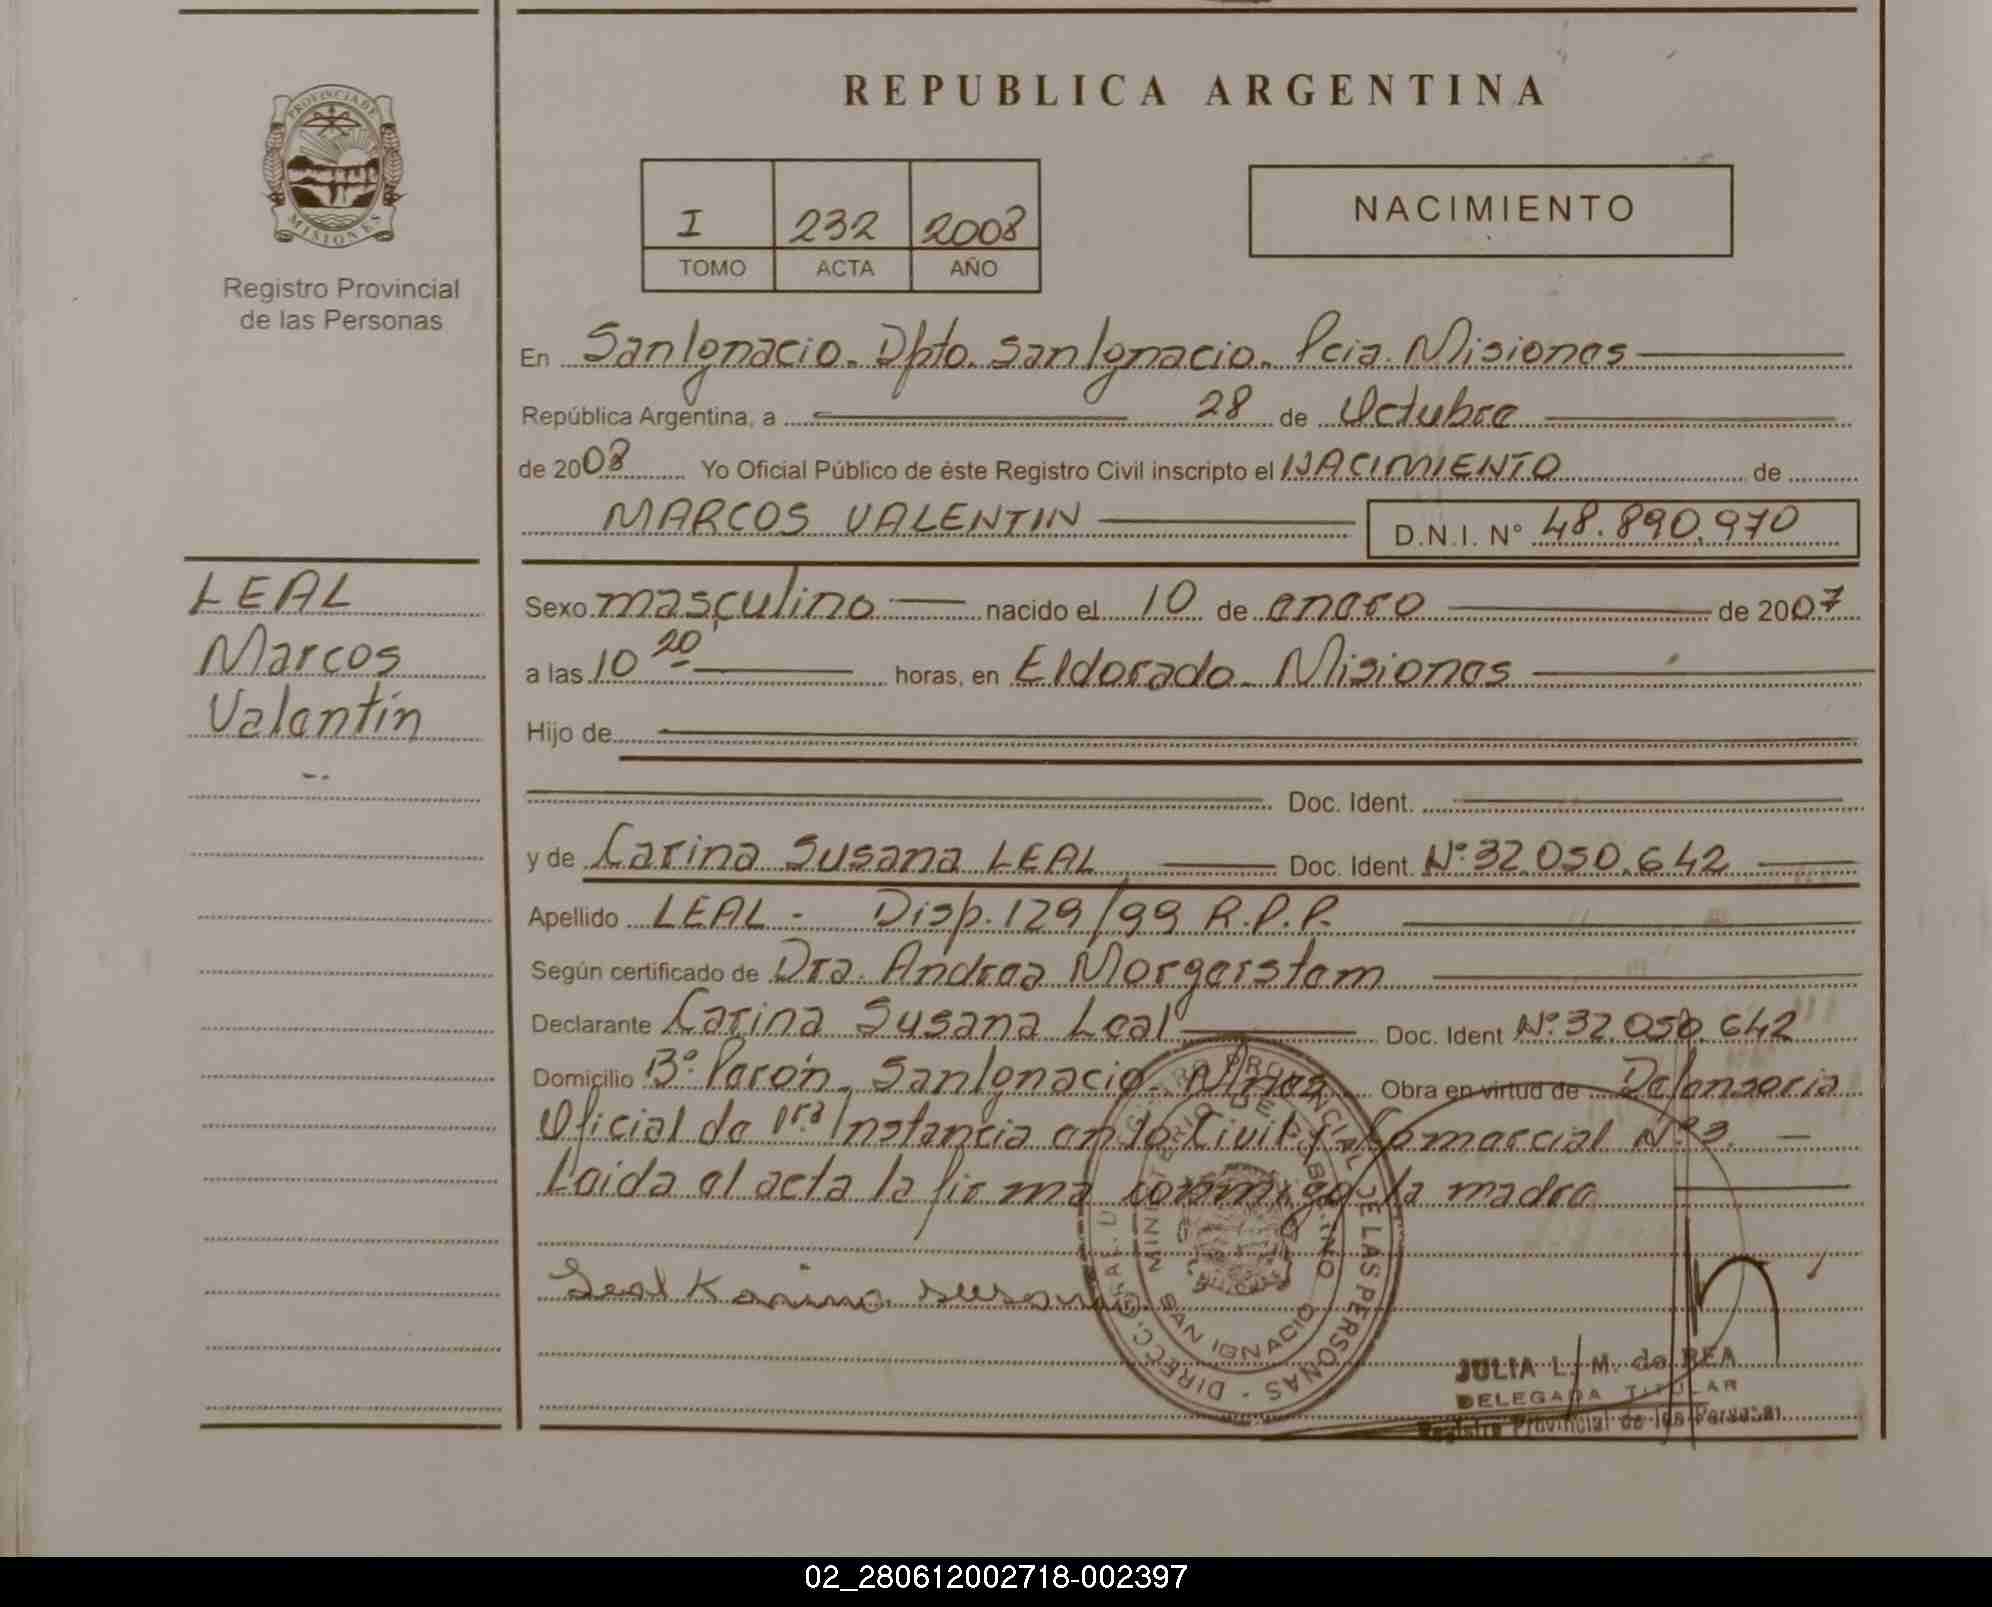 PROVINCIA DE
MISIONES
Registro Provincial
de las Personas
REPUBLICA ARGENTINA
I 232 2008
TOMO ACTA AÑO
NACIMIENTO
En San Ignacio. Dpto. San Ignacio. Pcia. Misiones
República Argentina, a 28 de Octubre
de 2008 Yo Oficial Público de éste Registro Civil inscripto el NACIMIENTO de
MARCOS VALENTIN D.N.I. Nº 48.890.970
LEAL
Marcos
Valentín
Sexo masculino nacido el 10 de enero de 2007
a las 10 20 horas, en Eldorado. Misiones
Hijo de
Doc. Ident.
y de Carina Susana LEAL Doc. Ident. Nº 32.050.642
Apellido LEAL - Disp. 129/99 R.P.P.
Según certificado de Dra. Andrea Morgerstem
Declarante Carina Susana Leal Doc. Ident Nº 32.050.642
Domicilio Bº Perón. San Ignacio. Mnes Obra en virtud de Defensoria
Oficial de 1ra Instancia en lo Civil y Comercial Nº 3.
Leida el acta la firma conmigo la madre
Leal Karina susana
DIRECC. GRAL. REGISTRO PROVINCIAL DE LAS PERSONAS -
MINISTERIO DE GOBIERNO
SAN IGNACIO
JULIA L. M. de REA
DELEGADA TITULAR
Registro Provincial de las Personas
02_280612002718-002397